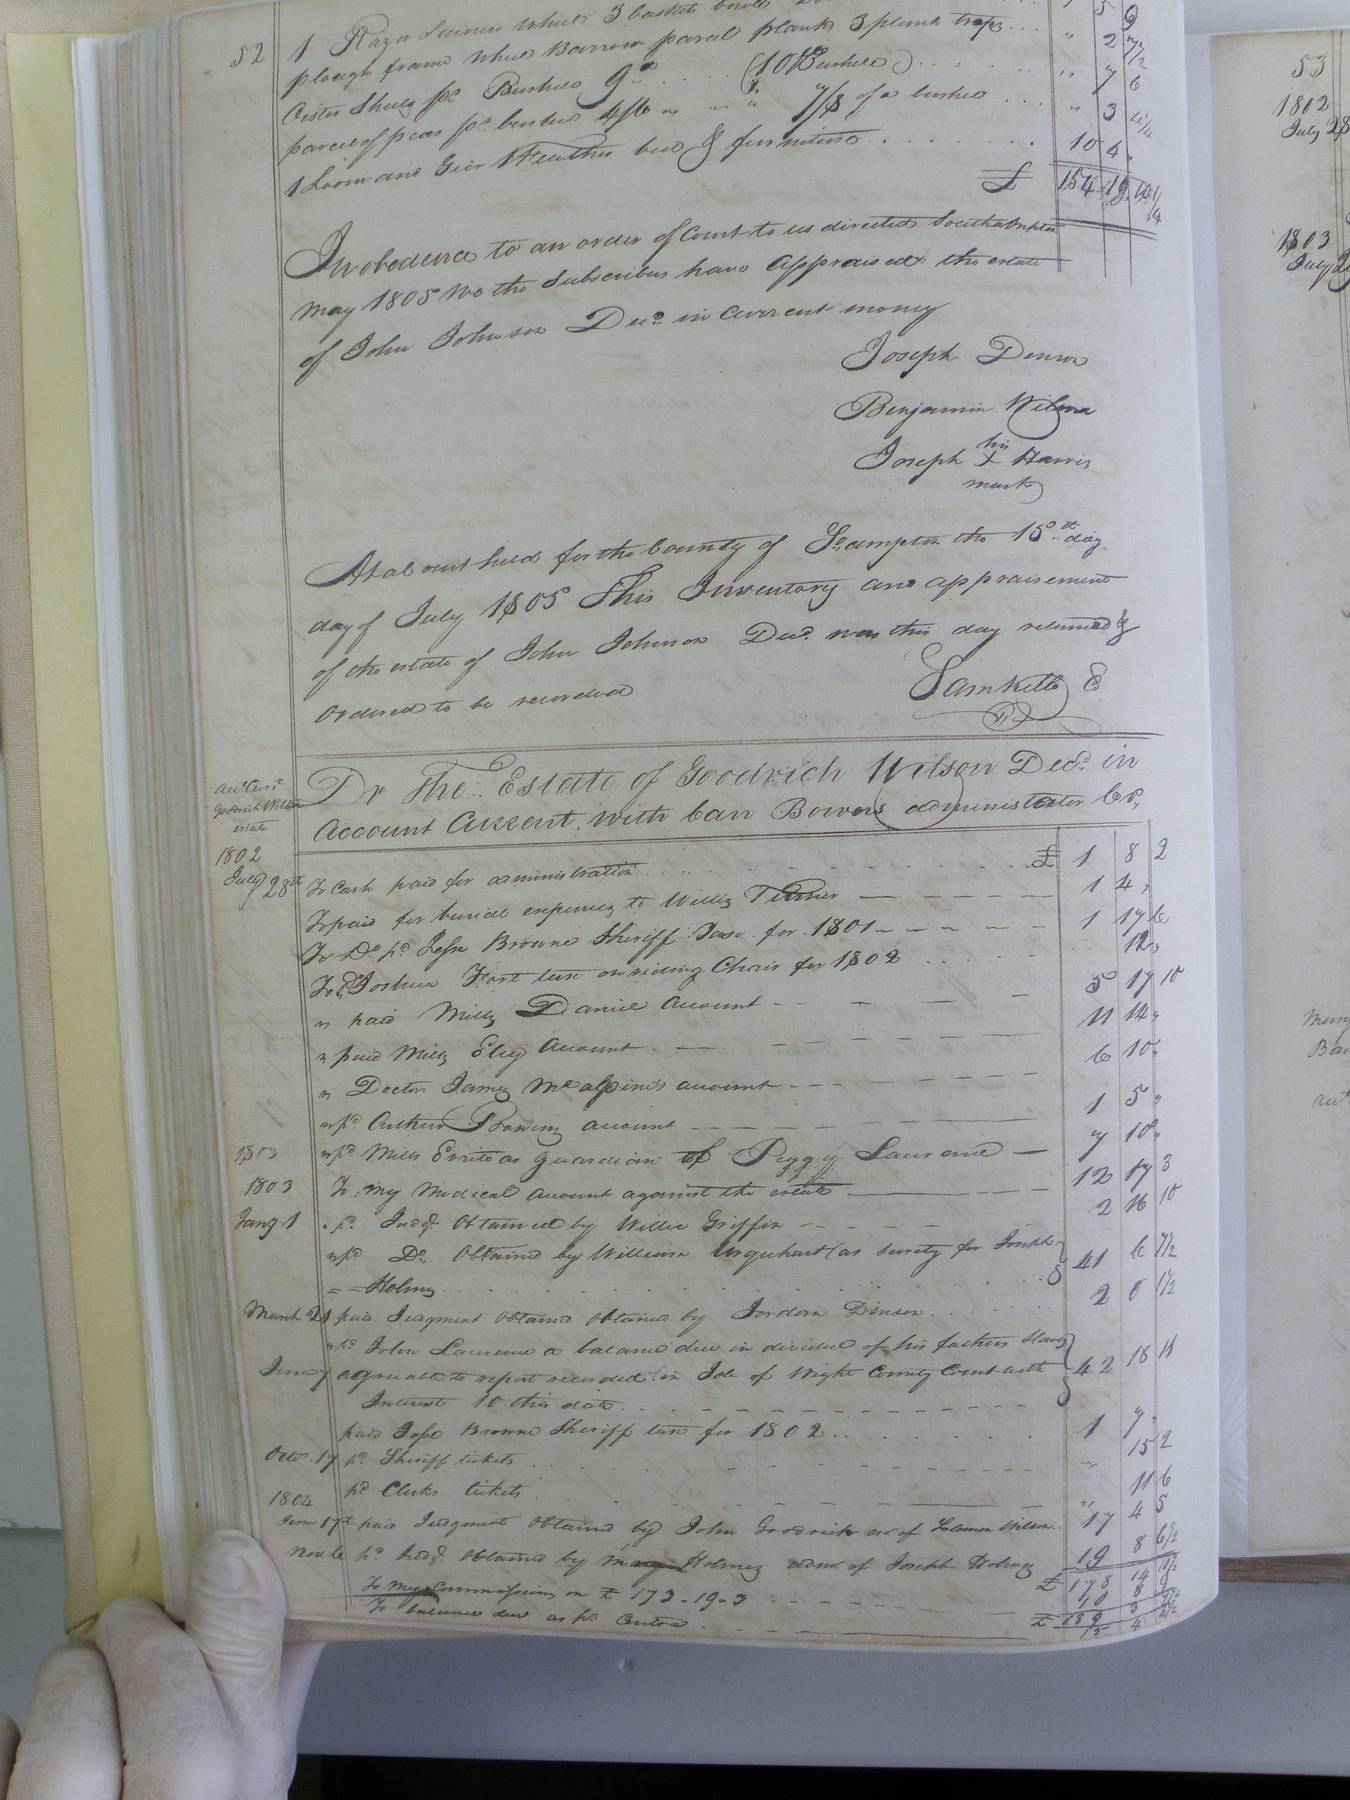 52
1 Razor 3 basket
plough frame wheel Barrow parcel plank 3 plank traps ... " 2 7 1/2
pr. Bushel 9d .... (10 Bushels) ..... " 7 6
parcel of peas pr. bushel 4/6 " " " 7/8 of a bushel ... " 3 11 1/4
1 Loom and Geer 1 Feather bed & furniture ........ 10 4 "
£ 154 19
In obedience to an order of Court to us directed Southampton
May 1805 We the Subscribers have Appraised the estate
of John Johnson Decd. in Current money
Joseph Denson
Benjamin Wilson
Joseph his X Harris
mark
At a Court held for the County of So.ampton the 15th day
day of July 1805 This Inventory and appraisement
of the estate of John Johnson Decd. was this day returned &
Ordered to be recorded
Sam Kello C
Acct. Curt.
Goodrich Wilson
estate
Dr The Estate of Goodrich Wilson Decd. in
Account Current with Carr Bowers administrator Cr.
1802
July 28th To Cash paid for administration ..... £ 1 8 2
To paid for burial expences to Willis Turner 1 4 "
To Do. pd. Jesse Browne Sheriff Tax for 1801 1 17 6
To pd. Joshua Fort tax on riding Chair for 1802 ..... 12 "
" paid Mills Daniel Account 5 17 10
" paid Mills Eley Account 11 14 "
" Doctor James McAlpine's account 6 10 "
" pd. Arthur Bowing account 1 5 "
1803 " pd. Mills Everit as guardian of Peggy Laurence 7 10 "
1803 To my Medical account against the estate 12 17 3
Jany 1 " pd. Judgt. Obtained by Willie Griffin 2 16 10
" pd. Do. Obtained by William Urquhart (as surety for Joseph
Holmes 41 6 7 1/2
March 21 paid Judgment obtained obtained by Jordan Denson 2 1 1/2
" pd. John Laurence a balance due in dividend of his fathers Slaves
June 7 agreeable to report recorded in Isle of Wight County Court with 42 18 11
Interest to this date
paid Jesse Browne Sheriff tax for 1802 .. 1 7 "
Octo. 17 pd. Sheriff tickets 15 2
pd. Clerks tickets 11 6
1804
June 17th paid Judgment Obtained by John Goodrich of Solomon Wilson 17 4 5
Nov 6 pd. Judgt. Obtained by Mary Holmes admx of Joseph Holmes 19 8 6 1/2
£ 178 14
To my commissions on £ 173.19.3
£
To balance due as pr. Contra 15 4
53
1802
July 28
1803
July